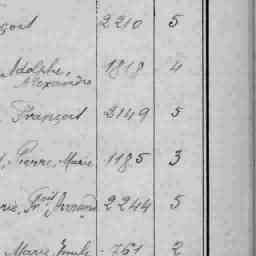 2210 5
Adolphe,
Alexandre 1818 4
François 2149 5
Pierre, Marie 1185 3
2244 5
Marie, Emile 761 2